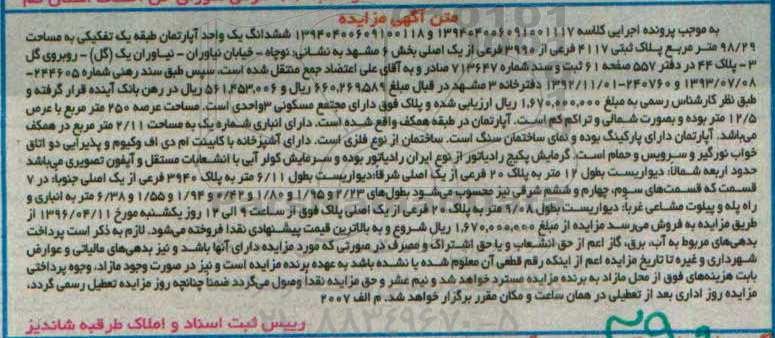 متن آگهی مزایده
به موجب پرونده اجرایی کلاسه ۱۳۹۴۰۴۰۰۶۰۹۱۰۰۱۱۱۷ و ۱۳۹۴۰۴۰۰۶۰۹۱۰۰۱۱۸ ششدانگ یک واحد آپارتمان طبقه یک تفکیکی به مساحت
۹۸/۲۹ متر مربع پلاک ثبتی ۴۱۱۷ فرعی از ۳۹۹۰ فرعی از یک اصلی بخش ۶ مشهد به نشانی: نوچاه - خیابان نیاوران - نیاوران یک (گل) - روبروی گل
۳ - پلاک ۴۴ در دفتر ۵۵۷ صفحه ۶۱ ثبت و سند شماره ۷۱۳۶۴۷ صادر و به آقای علی اعتضاد جمع منتقل شده است. سپس طبق سند رهنی شماره ۲۴۴۶۰۵-
۱۳۹۳/۰۷/۰۸ و ۲۴۰۷۶۰-۱۳۹۲/۱۱/۰۱ دفترخانه ۳ مشهد در قبال مبلغ ۶۶۰.۲۶۹.۵۸۹ ریال و ۵۶۱.۴۵۳.۰۰۶ ریال در رهن بانک آینده قرار گرفته و
طبق نظر کارشناس رسمی به مبلغ ۱,۶۷۰,۰۰۰,۰۰۰ ریال ارزیابی شده و پلاک فوق دارای مجتمع مسکونی ۳واحدی است. مساحت عرصه ۲۵۰ متر مربع با عرض
۱۲/۵ متر بوده و بصورت شمالی و تراکم کم است. آپارتمان در طبقه همکف واقع شده است. دارای انباری شماره یک به مساحت ۲/۱۱ متر مربع در همکف
می‌باشد. آپارتمان دارای پارکینگ بوده و نمای ساختمان سنگ است. ساختمان از نوع فلزی است. دارای آشپزخانه با کابینت ام دی اف وکیوم و پذیرایی دو اتاق
خواب نورگیر و سرویس و حمام است. گرمایش پکیج رادیاتور از نوع ایران رادیاتور بوده و سرمایش کولر آبی با انشعابات مستقل و آیفون تصویری می‌باشد
حدود اربعه شمالا: دیواریست بطول ۱۲ متر به پلاک ۲۰ فرعی از یک اصلی شرقا:دیواریست بطول ۶/۱۱ متر به پلاک ۳۹۴۰ فرعی از یک اصلی جنوبا: در ۷
قسمت که قسمت‌های سوم، چهارم و ششم شرقی نیز محسوب می‌شود بطول‌های ۲/۲۳ و ۱/۹۵ و ۱/۸۰ و ۰/۴۲ و ۱/۹۴ و ۱/۵۵ و ۶/۳۸ متر به انباری و
راه پله و پیلوت مشاعی غربا: دیواریست بطول ۹/۰۸ متر به پلاک ۲۰ فرعی از یک اصلی پلاک فوق از ساعت ۹ الی ۱۲ روز یکشنبه مورخ ۱۳۹۶/۰۴/۱۱ از
طریق مزایده به فروش می‌رسد مزایده از مبلغ ۱,۶۷۰,۰۰۰,۰۰۰ ریال شروع و به بالاترین قیمت پیشنهادی نقدا فروخته می‌شود. لازم به ذکر است پرداخت
بدهی‌های مربوط به آب، برق، گاز اعم از حق انشعاب و یا حق اشتراک و مصرف در صورتی که مورد مزایده دارای آنها باشد و نیز بدهی‌های مالیاتی و عوارض
شهرداری و غیره تا تاریخ مزایده اعم از اینکه رقم قطعی آن معلوم شده یا نشده باشد به عهده برنده مزایده است و نیز در صورت وجود مازاد، وجوه پرداختی
بابت هزینه‌های فوق از محل مازاد به برنده مزایده مسترد خواهد شد و نیم عشر و حق مزایده نقدا وصول می‌گردد ضمنا چنانچه روز مزایده تعطیل رسمی گردد،
مزایده روز اداری بعد از تعطیلی در همان ساعت و مکان مقرر برگزار خواهد شد. م الف ۲۰۰۷
رییس ثبت اسناد و املاک طرقبه شاندیز